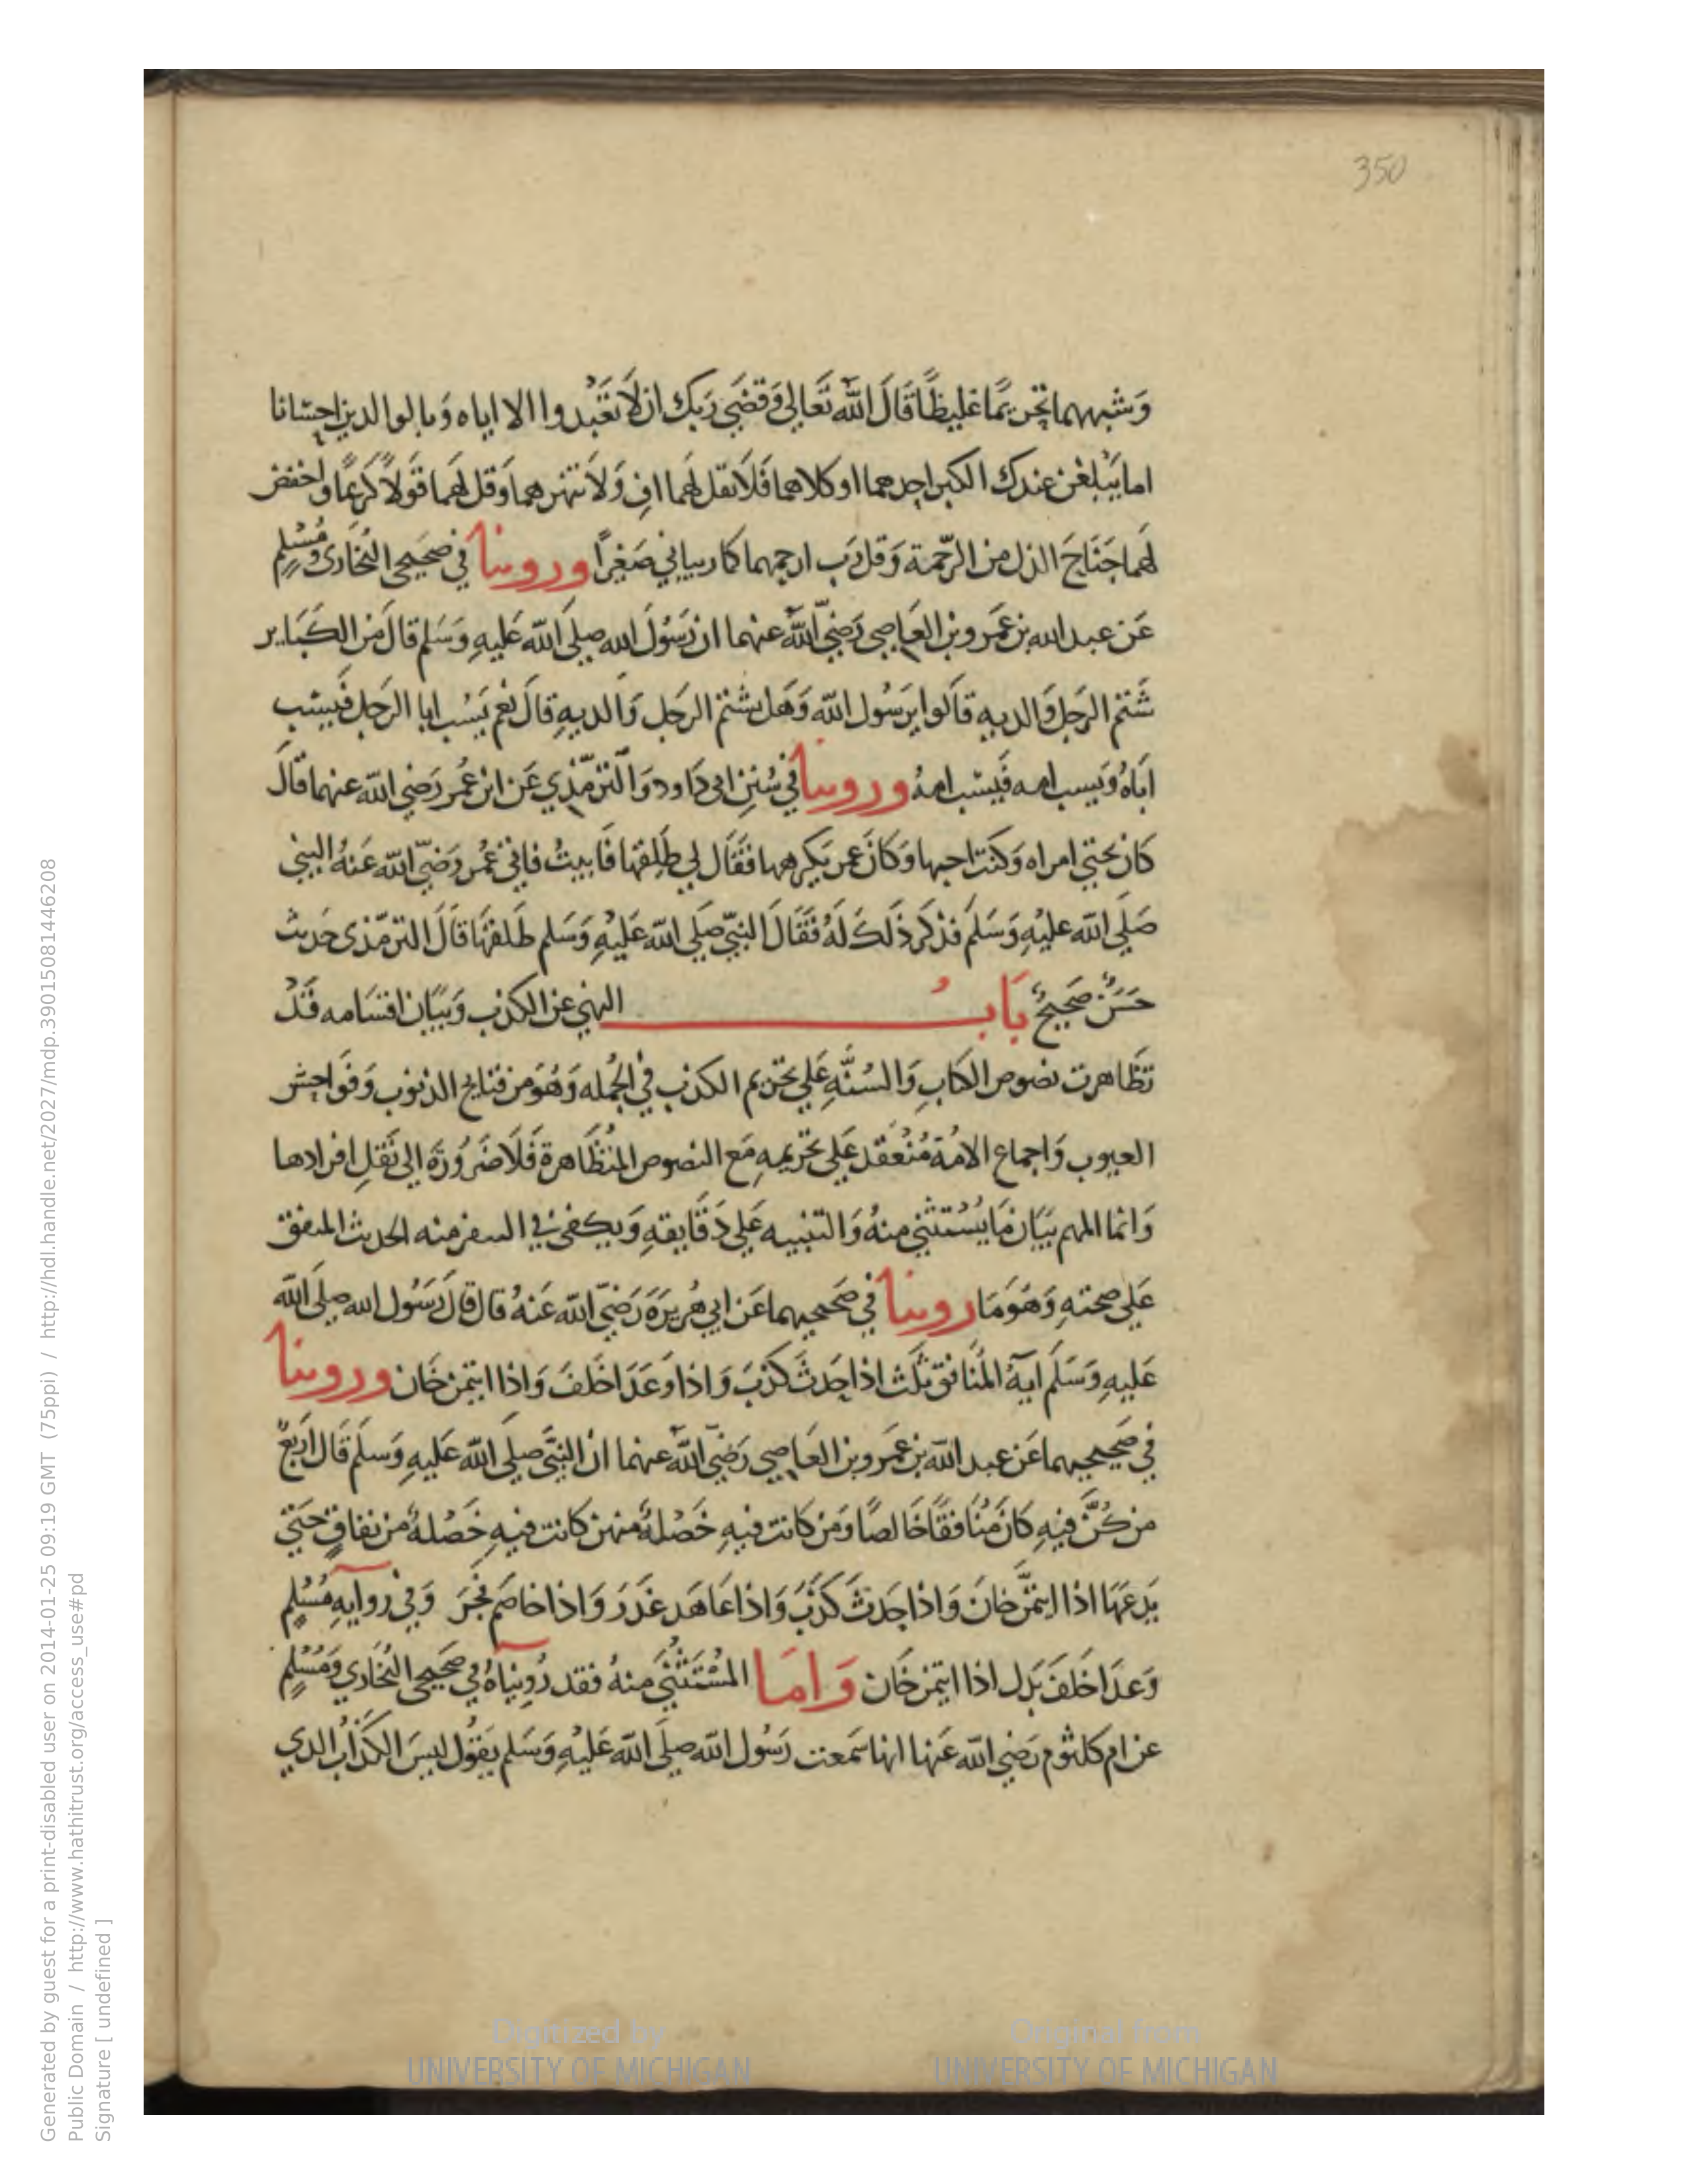 350
وَشبههما تحريمًا غليظًا قَالَ الله تَعَالى وَقضَى رَبك ان لَا تعَبُدوا الا اياه وَبالوالدين احسَانا
اما يَبْلغن عندك الكبر احدهما او كلاهما فَلَا تقل لهَما اف وَلَا تنهرهما وَقل لهَما قَولًا كَريمًا واخفض
لهَما جَنَاحَ الذل من الرّحمة وَقل رَب ارحمهما كما ربياني صَغيرًا وروينا في صَحيحى البُخارى ومُسْلم
عَن عبد الله بن عَمرو بن العَاصي رَضيَ الله عنهما ان رَسُولَ الله صلى الله عَليهِ وَسَلم قالَ من الكبَاير
شَتم الرجَل وَالديه قالَوا يرَسُول الله وَهَل يشتم الرجَل وَالديهِ قالَ نعم يَسُب ابا الرجَل فَيسُب
ابَاهُ وَيسب امه فَيسُب امهُ وروينا في سُنن ابى دَاود وَالترمّذي عَن ابن عُمر رَضي الله عنهما قالَ
كان تحتي امراه وَكنت احبها وَكانَ عمر يَكرهها فقَال لي طَلِقها فَابيتُ فاتى عُمر رَضيَ الله عَنهُ النبي
صَلى الله عليْهِ وَسَلم فذكرَ ذَلكَ لَهُ فقَالَ النبيّ صَلى الله عَليْهِ وَسَلم طَلقهَا قَالَ الترمّذى حَديث
حَسَنٌ صَحيحٌ بَابُ النهي عن الكذب وَبيَان اقسَامه قَدْ
تظَاهرت نصوص الكتاب وَالسُنَّهِ عَلى تحَريم الكذب في الجُمله وَهُوَ من قبَايح الذنوب وَفَواحش
العيوب وَاجماع الامُة مُنْعَقد عَلى تحَريمهِ مَع النصوص المُتظَاهرة فَلَا ضَرُورَة الى نَقلِ افرادها
وَانما المهم بيَان مَا يُسْتثنى منهُ وَالتنبيه عَلى دَقَايقهِ وَيكفى في السفر منه الحديث المتفق
عَلى صحتهِ وَهُوَ مَا روينا في صَحيحيهما عَن ابي هُريرَة رَضيَ الله عَنهُ قال قالَ رَسُول الله صلى الله
عَليهِ وَسَلَم ايةُ المُنَافق ثَلَث اذا حَدث كذبَ وَاذا وَعَدَ اخَلفَ وَاذا ايتمن خَان وروينا
في صَحيحيهما عَن عبد الله بن عَمرو بن العَاصي رَضيَ الله عنهما ان النبَّي صلى الله عَليهِ وَسلَم قَالَ اربَعٌ
من كُنَّ فيهِ كانَ مُنَافقًا خَالصًا وَمَن كانت فيهِ خَصْلةٌ منهن كانت فيهِ خَصْلةٌ من نفاقٍ حَتى
يَدعَهَا اذا ايتمُنَّ خانَ وَاذا حَدثَ كَذبَ وَاذا عَاهَد غَدَرَ وَاذا خاصَم فجَرَ وَفي روايهِ مُسْلِم
وَعدَ اخَلفَ بَدل اذا ايتمن خَان وَامَا المسْتَثنَى منهُ فقد رُوينَاهُ في صحَيحى البُخَاري وَمُسْلِم
عن ام كلثوم رَضي الله عَنها انها سَمعت رَسُول الله صلَى الله عَليْهِ وَسَلم يَقوُل ليسَ الكذَابُ الدي
Generated by guest for a print-disabled user on 2014-01-25 09:19 GMT (75ppi) / http://hdl.handle.net/2027/mdp.39015081446208
Public Domain / http://www.hathitrust.org/access_use#pd
Signature [ undefined ]
Digitized by
UNIVERSITY OF MICHIGAN
Original from
UNIVERSITY OF MICHIGAN